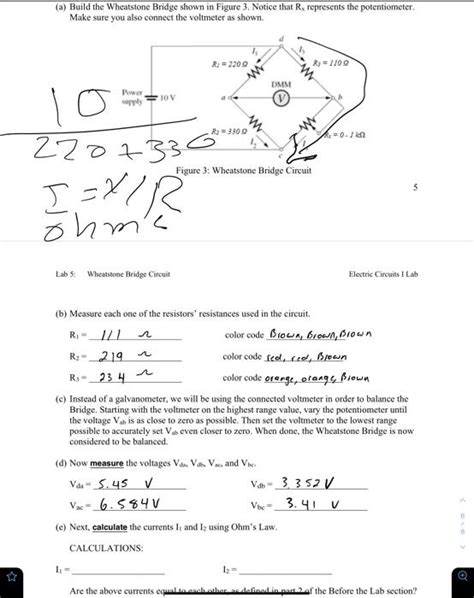 (a) Build the Wheatstone Bridge shown in Figure 3. Notice that Rx represents the potentiometer.
Make sure you also connect the voltmeter as shown.
d
I1 I3
R2 = 220 Ω R3 = 110 Ω
DMM
Power
supply 10 V
a V b
10
R2 = 330 Ω = 0 - 1 kΩ
I2
c
220 + 330
Figure 3: Wheatstone Bridge Circuit
I = V/R
5
ohm's
Lab 5: Wheatstone Bridge Circuit Electric Circuits I Lab
(b) Measure each one of the resistors' resistances used in the circuit.
R1 = 111 Ω color code Brown, Brown, Brown
R2 = 219 Ω color code red, red, Brown
R3 = 234 Ω color code orange, orange, Brown
(c) Instead of a galvanometer, we will be using the connected voltmeter in order to balance the
Bridge. Starting with the voltmeter on the highest range value, vary the potentiometer until
the voltage Vab is as close to zero as possible. Then set the voltmeter to the lowest range
possible to accurately set Vab even closer to zero. When done, the Wheatstone Bridge is now
considered to be balanced.
(d) Now measure the voltages Vda, Vdb, Vac, and Vbc.
Vda = 5.45 V Vdb = 3.352 V
Vac = 6.584 V Vbc = 3.41 V
(e) Next, calculate the currents I1 and I2 using Ohm's Law.
CALCULATIONS:
I1 = I2 =
Are the above currents equal to each other, as defined in part 2 of the Before the Lab section?
6
/
6